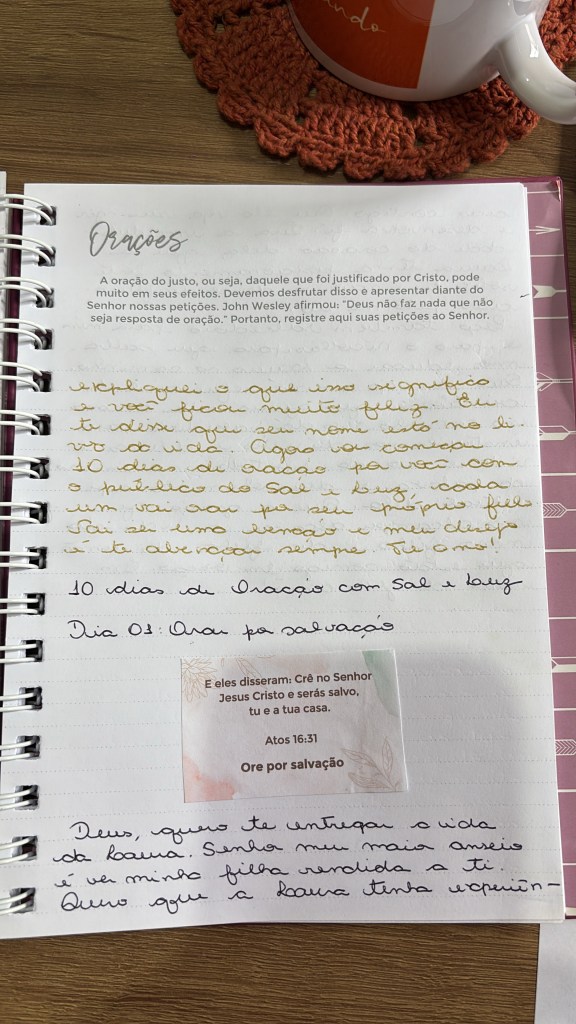 ando
Orações
A oração do justo, ou seja, daquele que foi justificado por Cristo, pode
muito em seus efeitos. Devemos desfrutar disso e apresentar diante do
Senhor nossas petições. John Wesley afirmou: "Deus não faz nada que não
seja resposta de oração." Portanto, registre aqui suas petições ao Senhor.
expliquei o que isso significa
e você ficou muito feliz. Eu
te disse que seu nome está no li-
vro da vida. Agora vou começar
10 dias de oração por você com
o público do Sal e Luz, cada
um vai orar por seu próprio filho
Vai ser uma benção e meu desejo
é te abençoar sempre. Te amo!
10 dias de Oração com Sal e Luz
Dia 01: Orar por salvação
E eles disseram: Crê no Senhor
Jesus Cristo e serás salvo,
tu e a tua casa.
Atos 16:31
Ore por salvação
Deus, quero te entregar a vida
da Laura. Senhor meu maior anseio
é ver minha filha rendida a ti.
Quero que a Laura tenha experiên-